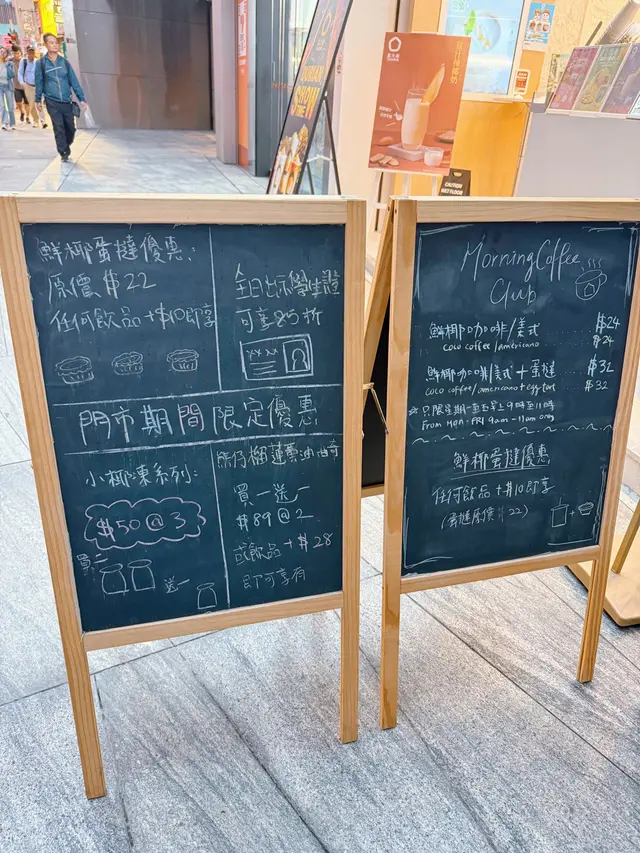 鮮椰蛋撻優惠:
原價$22
任何飲品+$10即享
全日出示學生證
可享85折
XX XX
門市期間限定優惠
小椰凍系列:
$50@3
買二
送一
榴蓮蛋油
買一送一
$89@2
或飲品+$28
即可享有
Morning Coffee
Club
鮮椰咖啡/美式 $24
coco coffee/americano $24
鮮椰咖啡/美式+蛋撻 $32
coco coffee/americano+egg tart $32
☆只限星期一至五早上9時至11時
From Mon-FRI 9am-11am only
鮮椰蛋撻優惠
任何飲品+$10即享
(蛋撻原價$22)
CAUTION
WET FLOOR
DURIAN
SHOW
TIME